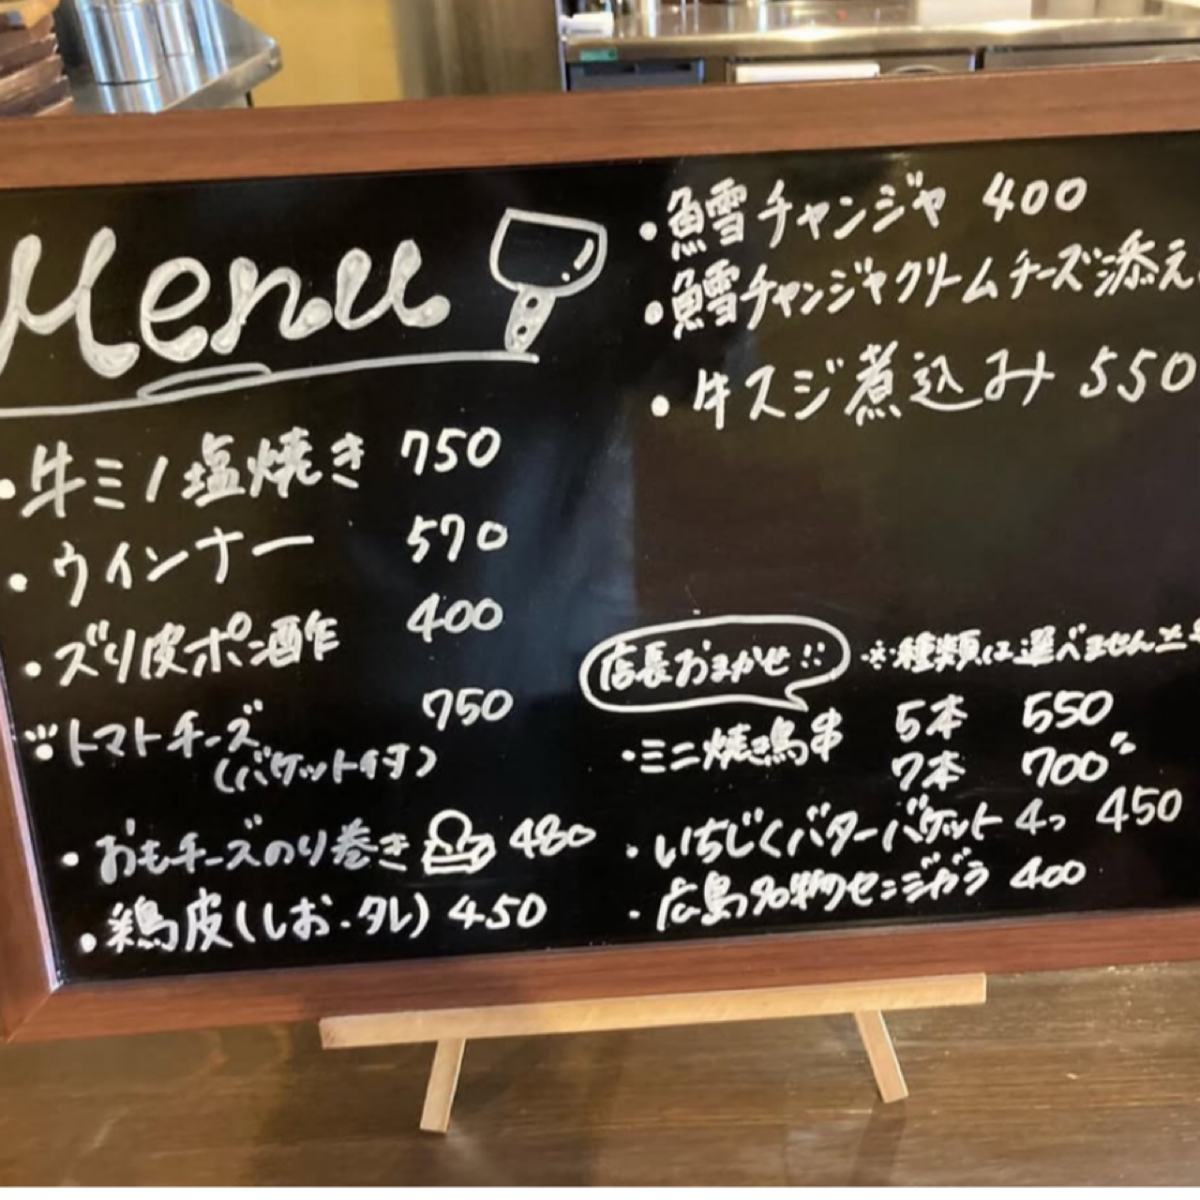 Menu
・牛ミノ塩焼き 750
・ウインナー 570
・ズリ皮ポン酢 400
・トマトチーズ 750
(バケット付)
・おもチーズのり巻き 480
・鶏皮(しお・タレ) 450
・鱈チャンジャ 400
・鱈チャンジャクリームチーズ添え
・牛スジ煮込み 550
店長おまかせ!! ※種類は選べません
・ミニ焼き鳥串 5本 550
7本 700
・いちじくバターバケット 4つ 450
・広島名物センジガラ 400